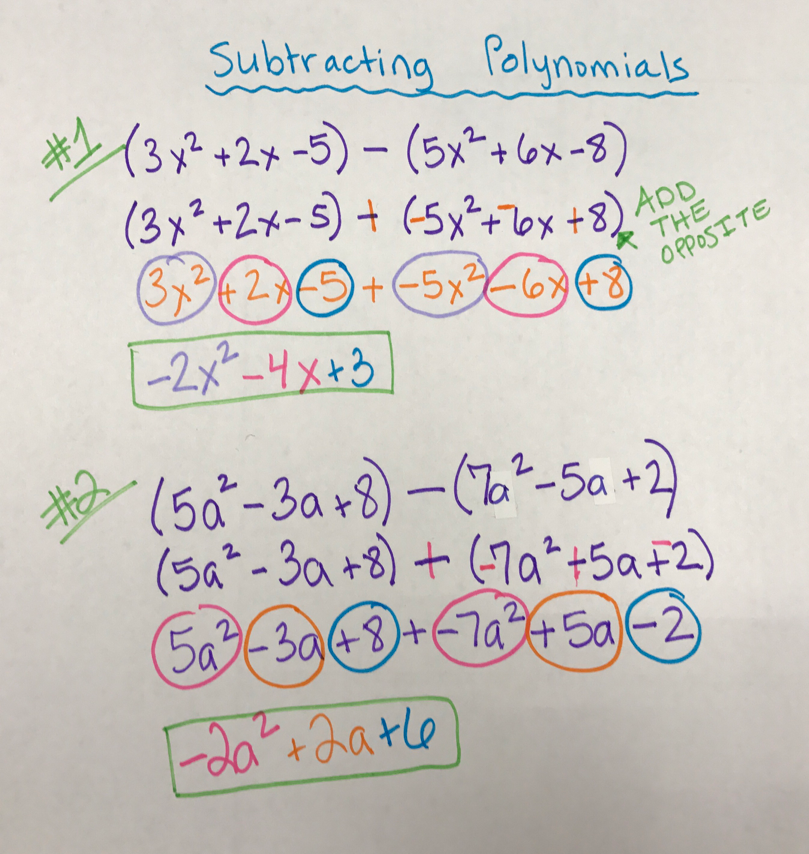 Subtracting Polynomials
#1 (3x² +2x -5) - (5x² +6x -8)
(3x² +2x -5) + (-5x² +-6x +8) ADD THE OPPOSITE
3x² +2x -5 + -5x² -6x +8
-2x² -4x +3
#2 (5a² -3a +8) - (7a² -5a +2)
(5a² -3a +8) + (-7a² +5a +-2)
5a² -3a +8 + -7a² +5a -2
-2a² +2a +6